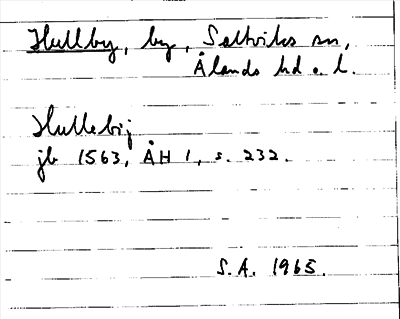 Hullby, by, Saltviks sn,
Ålands hd o. l.
Hullebij
jb 1563, ÅH 1, s. 232.
S.A. 1965.